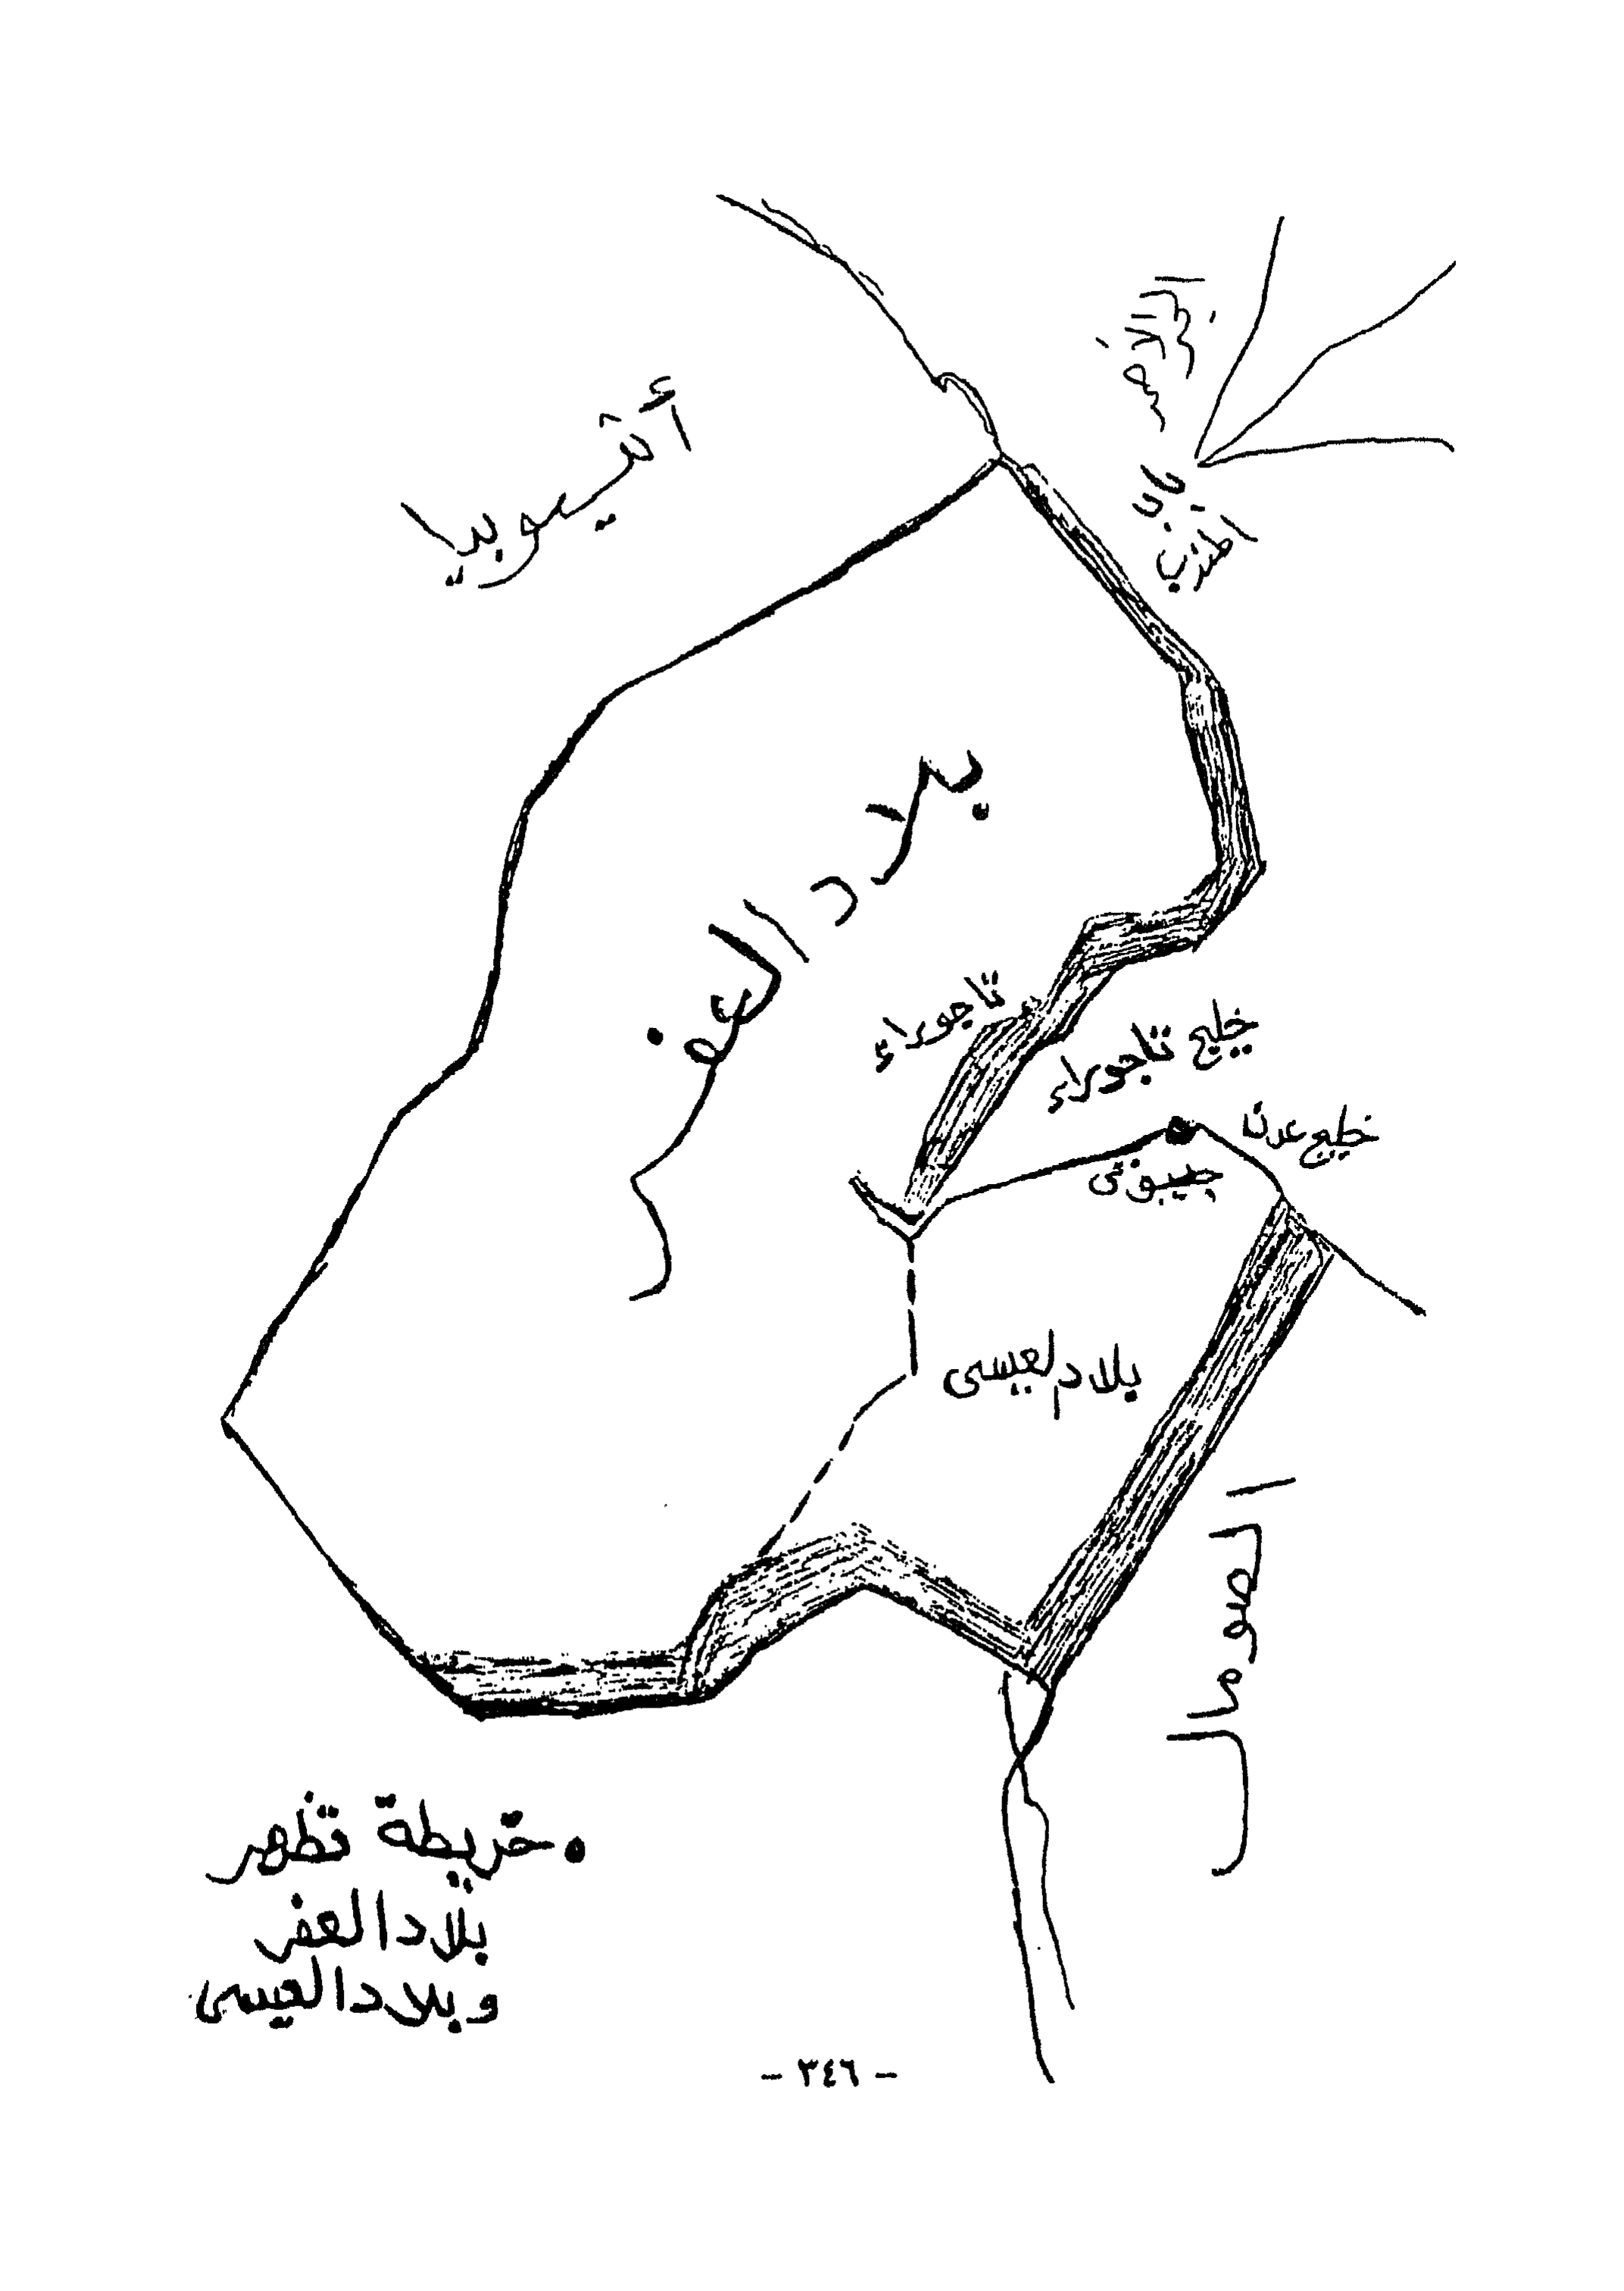 البحر الأحمر
أثيوبيا
باب
المندب
بلاد العفر
تاجوراء
خليج تاجوراء
خليج عدن
جيبوتى
بلاد العيسى
الصومال
• خريطة تظهر
بلاد العفر
وبلاد العيسى
- ٣٤٦ -